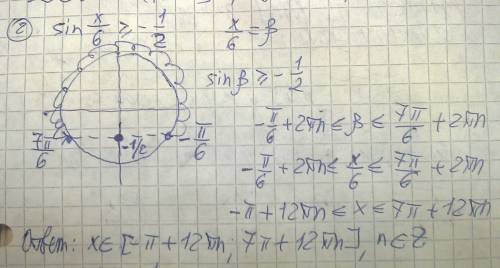 ② sin x/6 ≥ -1/2    x/6 = β
sin β ≥ -1/2
7π/6    -1/2    -π/6
-π/6 + 2πn ≤ β ≤ 7π/6 + 2πn
-π/6 + 2πn ≤ x/6 ≤ 7π/6 + 2πn
-π + 12πn ≤ x ≤ 7π + 12πn
Ответ: x∈[-π + 12πn; 7π + 12πn], n∈Z